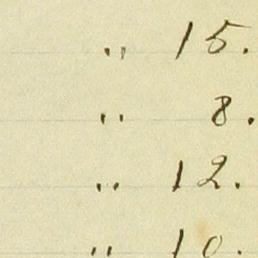 " 15.
" 8.
" 12.
" 10.